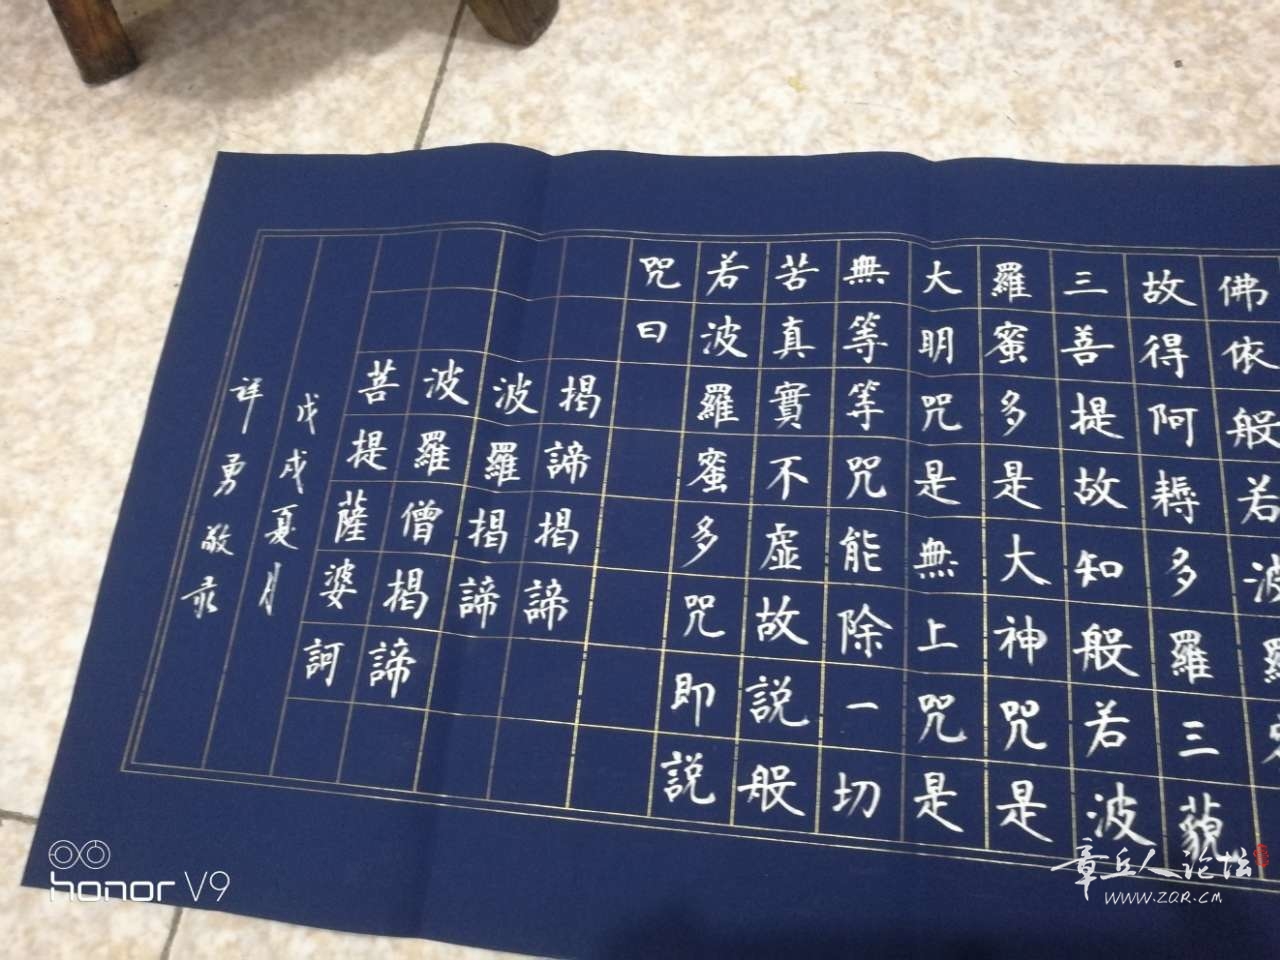 佛依般若波羅
故得阿耨多羅三藐
三善提故知般若波
羅蜜多是大神咒是
大明咒是無上咒是
無等等咒能除一切
苦真實不虛故説般
若波羅蜜多咒即説
咒曰
揭諦揭諦
波羅揭諦
波羅僧揭諦
菩提薩婆訶
戊戌夏月
祥勇敬录
honor V9
章丘人论坛
WWW.ZQR.CM